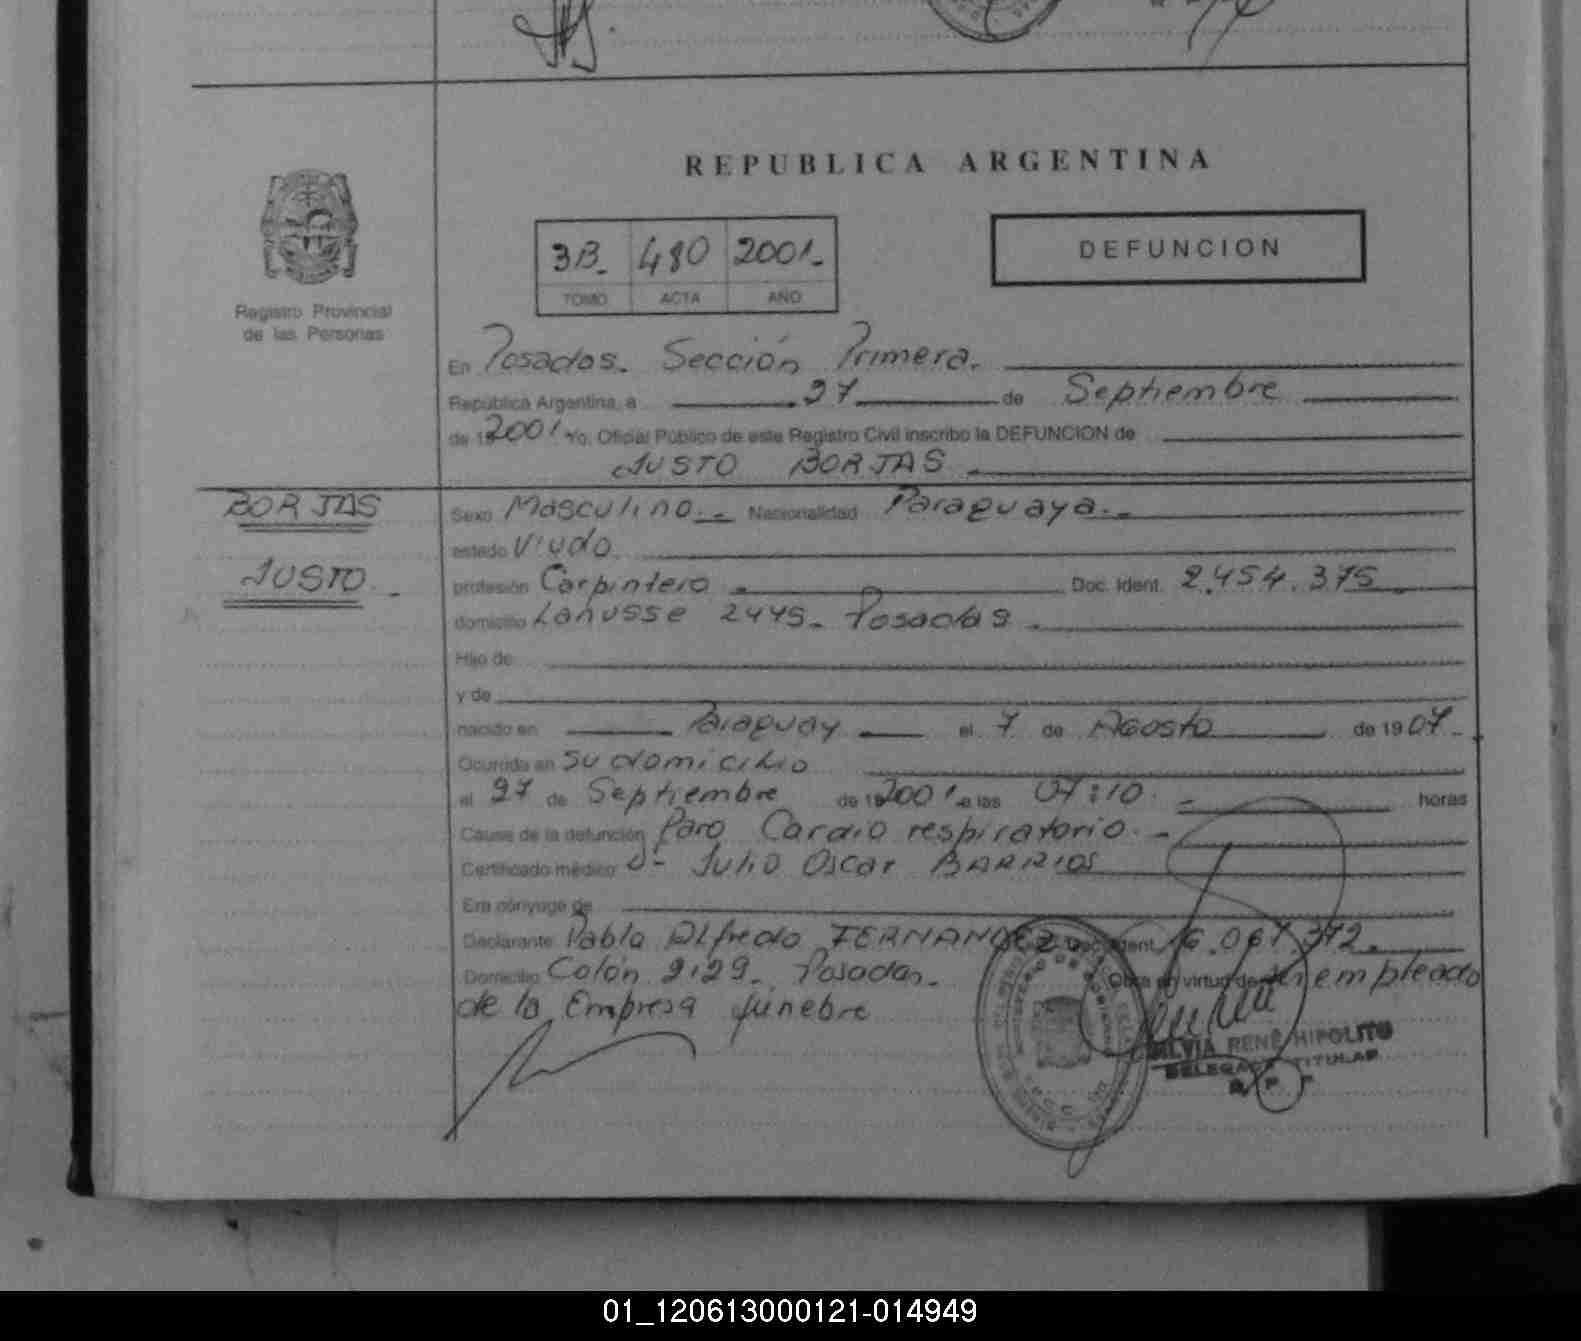 REPUBLICA ARGENTINA
3B. 480 2001.
TOMO ACTA AÑO
DEFUNCION
Registro Provincial
de las Personas
En Posadas. Sección Primera.
República Argentina, a 27 de Septiembre
de 19 2001 Yo. Oficial Público de este Registro Civil inscribo la DEFUNCION de
JUSTO BORJAS
BORJAS
JUSTO.
Sexo Masculino. Nacionalidad Paraguaya.
estado Viudo
profesión Carpintero Doc. Ident. 2.454.375
domicilio Lanusse 2445. Posadas
Hijo de
y de
nacido en Paraguay el 7 de Agosto de 19 07.
Ocurrida en Su domicilio
el 27 de Septiembre de 19 2001 a las 07:10. horas
Causa de la defunción Paro Cardio respiratorio.
Certificado médico Dr Julio Oscar BARRIOS
Era cónyuge de
Declarante Pablo Alfredo FERNANDEZ Doc. Ident. 16.067.372.
Domicilio Colón 2129. Posadas. Obra en virtud de Ser empleado
de la Empresa fúnebre
SILVIA RENÉ HIPOLITO
DELEGADA TITULAR
R. P.
01_120613000121-014949